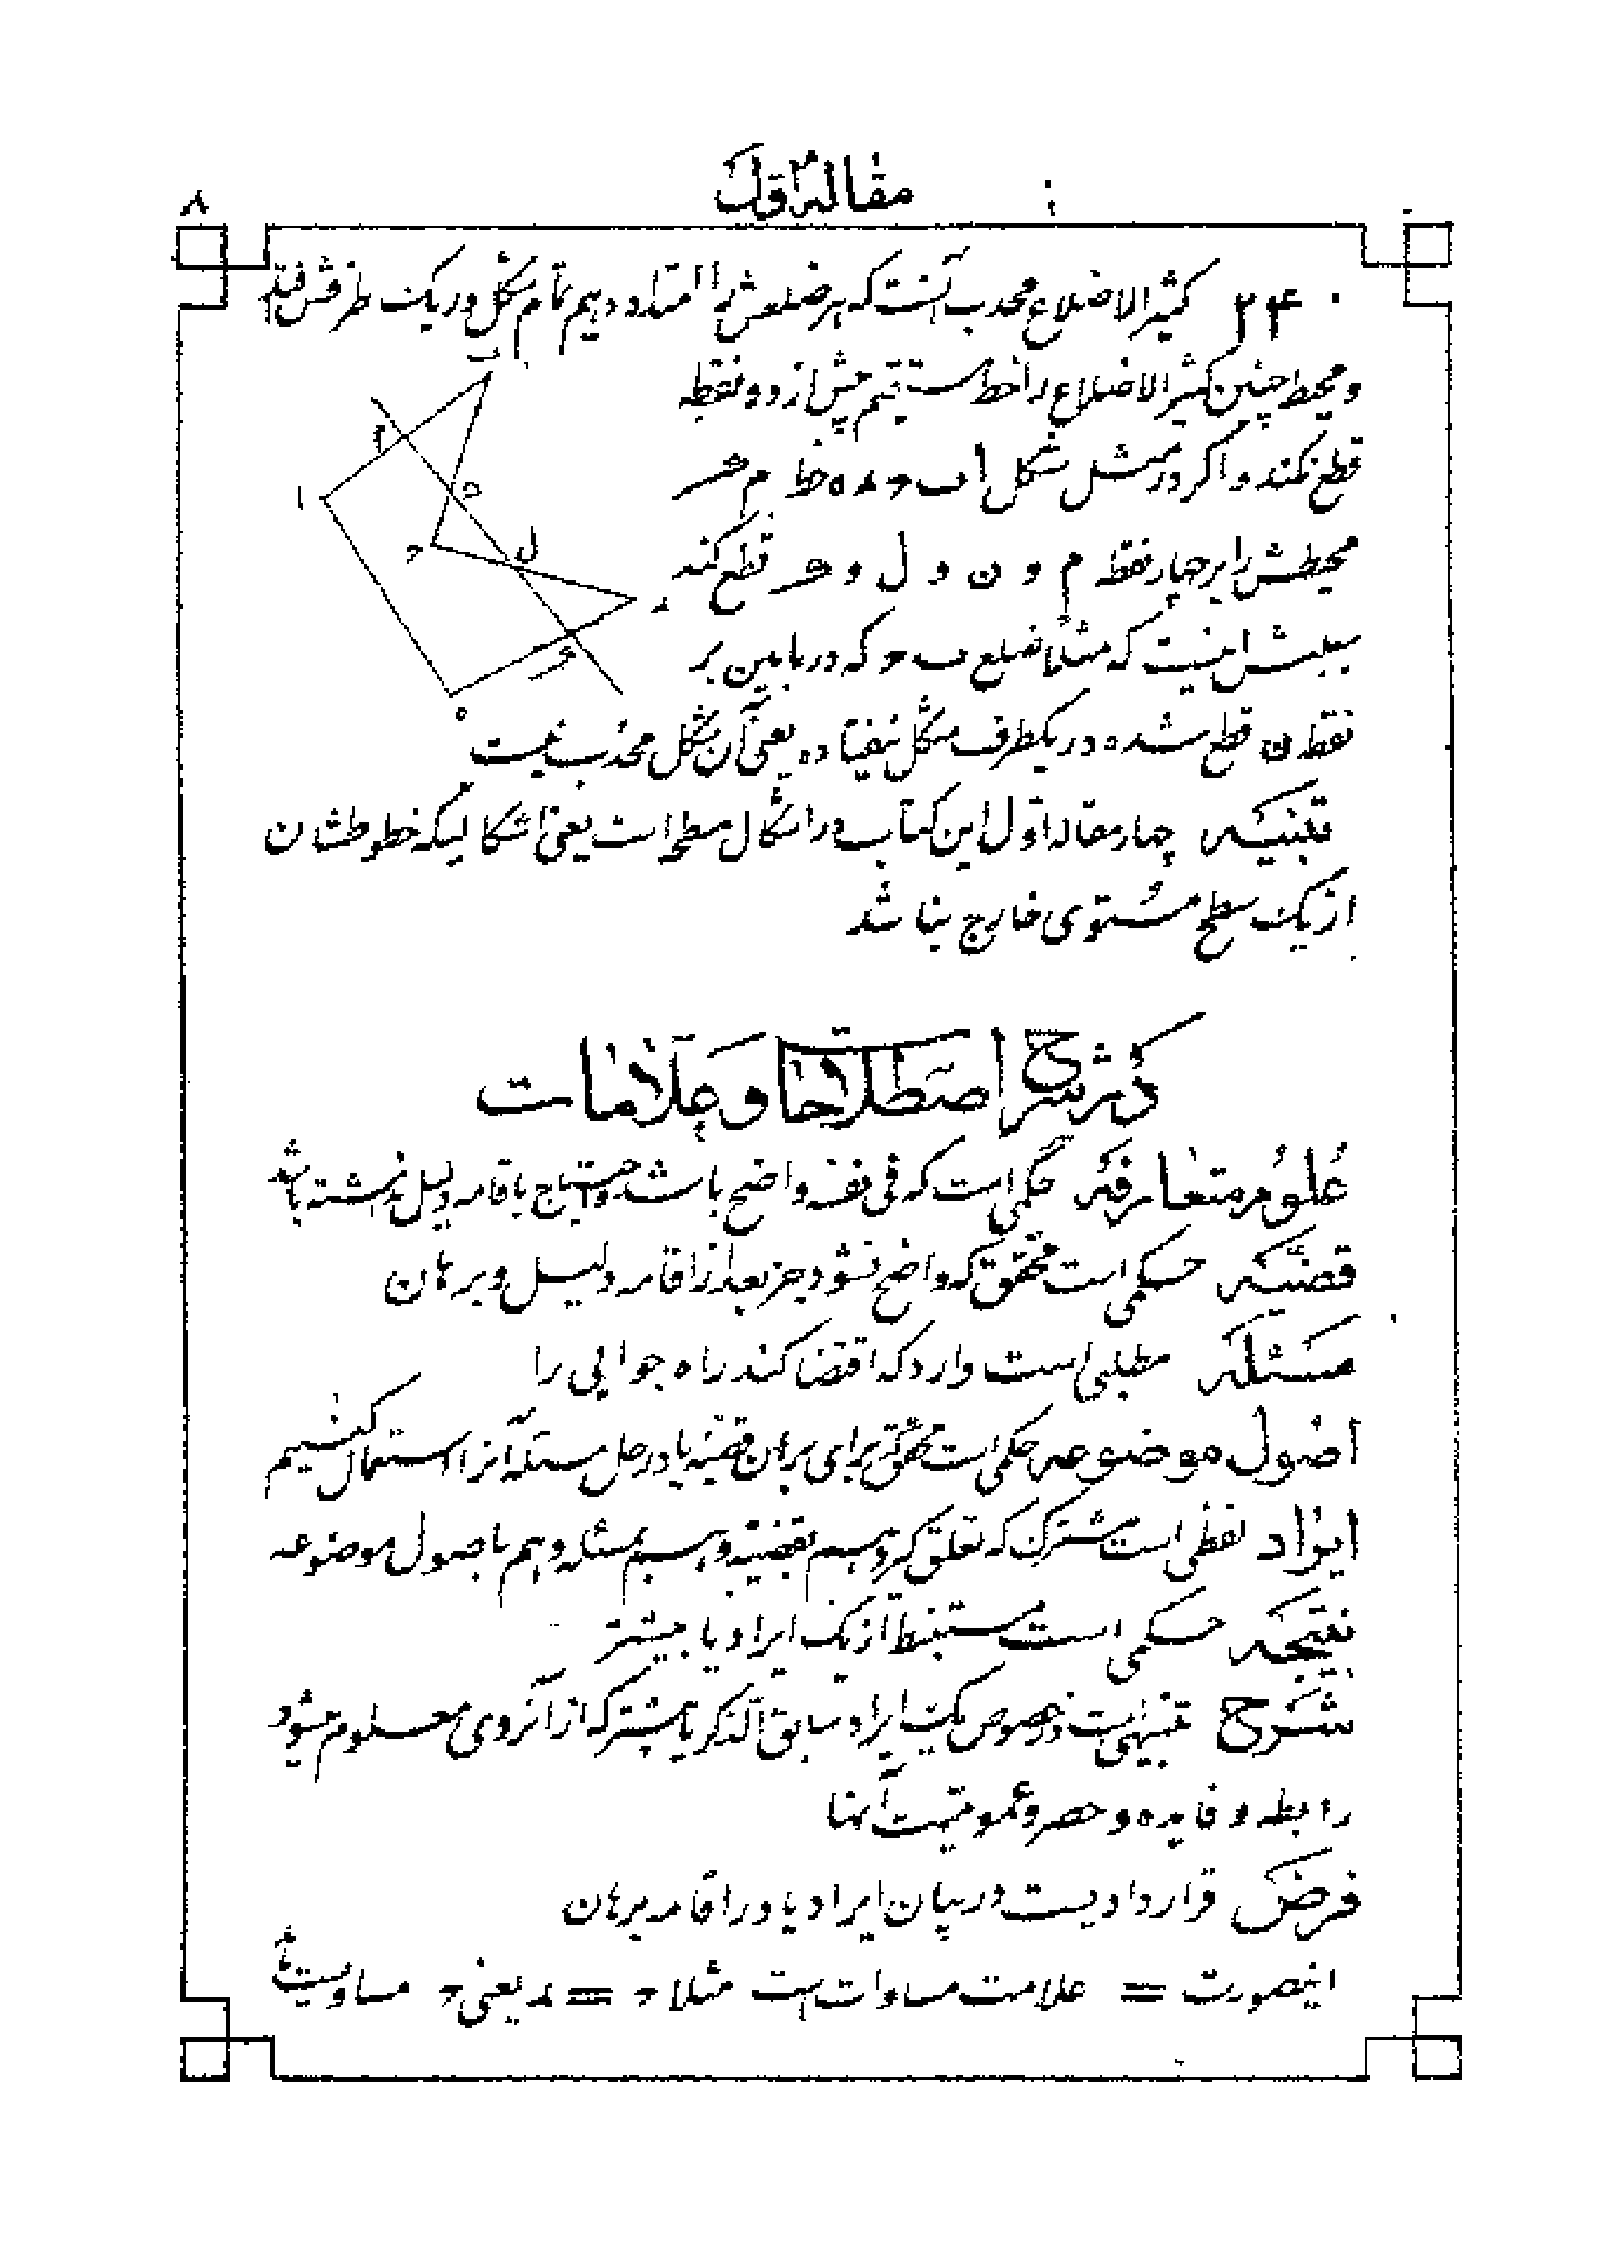 مقاله اول
۸
۲۴ کثیر الاضلاع محدب آنست که هر ضلعش را امتداد دهیم تمام شکل در یک طرفش افتد
و محیط چنین کثیر الاضلاع را خط مستقیم بیش از دو نقطه
قطع نکند و اگر در مثل شکل ا ب ح د ه خط م ع
محیطش را بر چهار نقطه م و ن و ل و ع قطع کند
سببش اینست که مثلا ضلع ب ح که در مابین بر
نقطه ن قطع شده در یکطرف شکل نیفتاده یعنی آن شکل محدب نیست
تنبیه چهار مقاله اول این کتاب در اشکال مسطحه است یعنی اشکالیکه خطوطشان
از یک سطح مستوی خارج نباشد
در شرح اصطلاحات و علامات
علوم متعارفه حکمی است که فی نفسه واضح باشد و احتیاج باقامه دلیل نداشته باشد
قضیه حکمی است محقق که واضح نشود جز بعد از اقامه دلیل و برهان
مسئله مطلبی است وارد که اقتضا کند راه جوابی را
اصول موضوعه حکمی است محقق که برای برهان قضیه یا در حل مسئله آنرا استعمال کنیم
ایراد لفظی است مشترک که تعلق گیرد هم بقضیه و هم بمسئله و هم باصول موضوعه
نتیجه حکمی است مستنبط از یک ایراد یا بیشتر
شرح تنبیهی است در خصوص یک ایراد سابق الذکر یا بیشتر که از آنروی معلوم میشود
رابطه و فایده و حصر و عمومیت آنها
فرض قراردادیست در بیان ایراد یا در اقامه برهان
اینصورت = علامت مساوات است مثلا ح = د یعنی ح مساویست با
ب
م
ا
ن
ح
ل
د
ع
ه